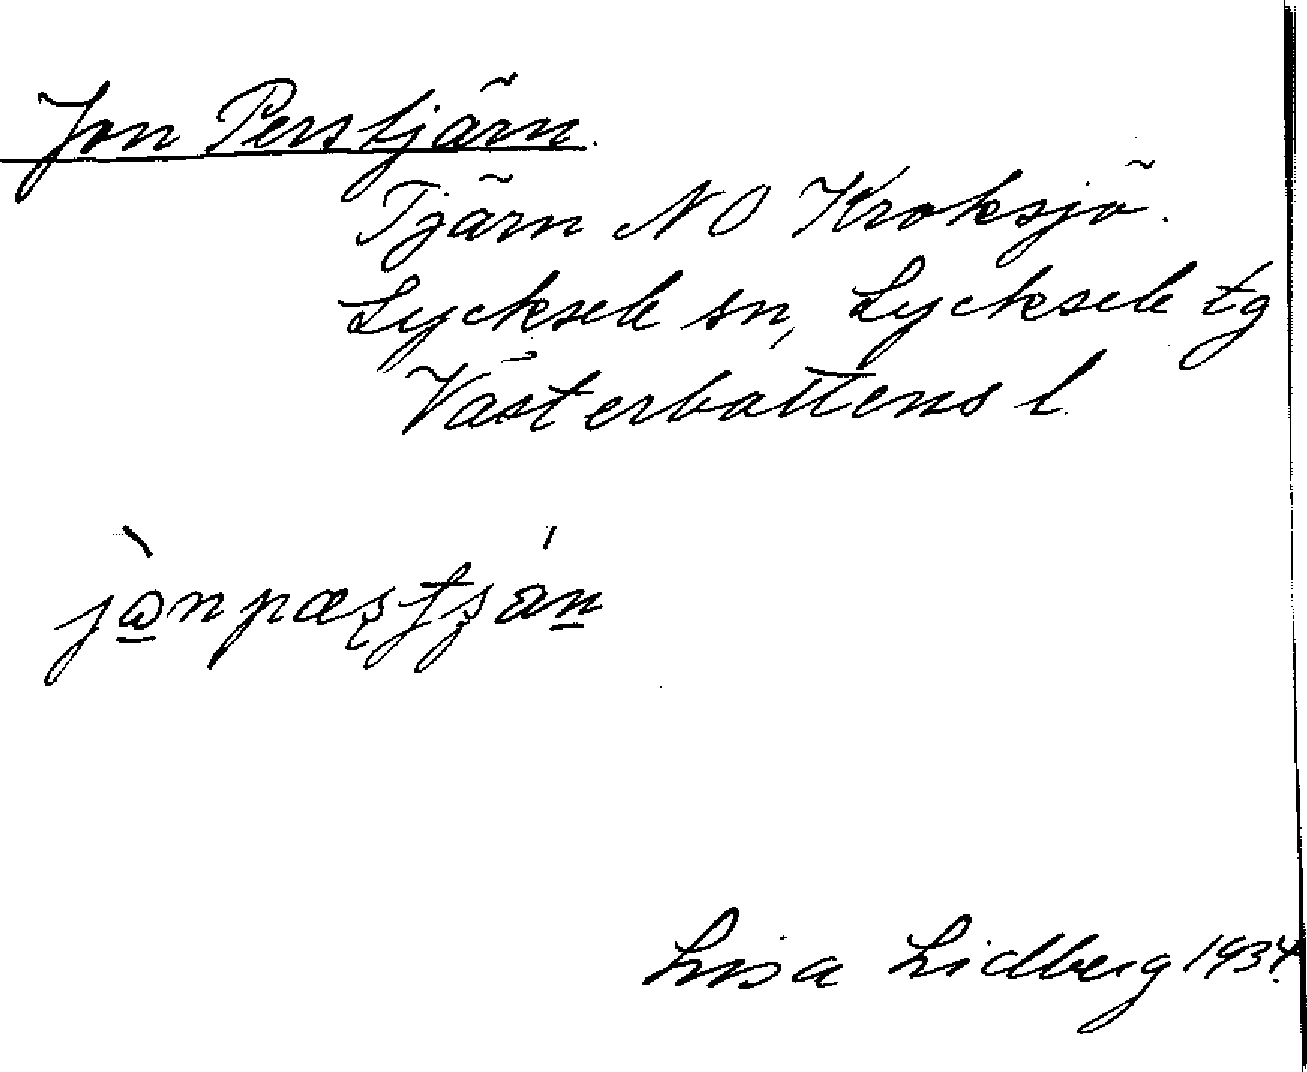 Jon Perstjärn.
Tjärn NO Kroksjö.
Lycksele sn, Lycksele tg
Västerbottens l.
Lisa Lidberg 1934.